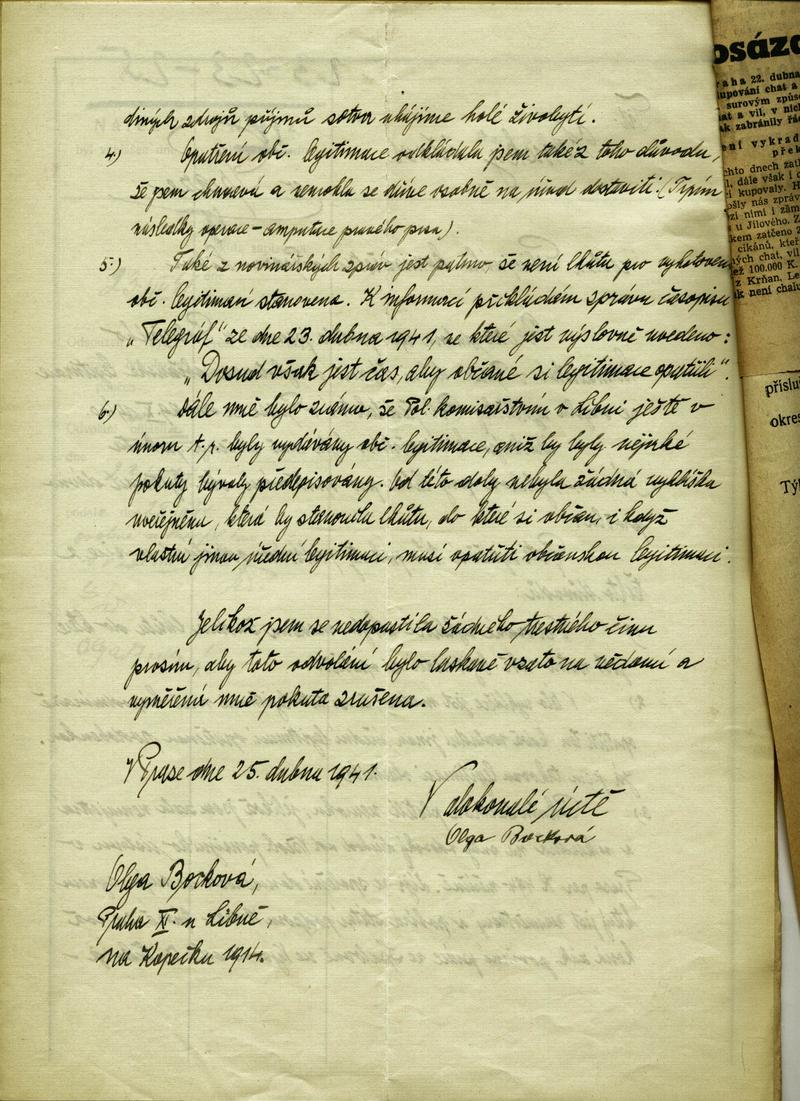 diných zdrojů příjmů sotva uhájíme holé živobytí.
4.) Opatření obč. legitimace odkládala jem také z toho důvodu,
že jsem churavá a nemohla se dříve osobně na úřad dostaviti. (Trpím
následky operace – amputace pravého prsa).
5.) Také z novinářských zpráv jest patrno, že není lhůta pro vyhotovení
obč. legitimací stanovena. K informaci přikládám zprávu časopisu
„Telegraf" ze dne 23. dubna 1941, ve které jest výslovně uvedeno:
„Dosud však jest čas, aby občané si legitimace opatřili".
6.) Dále mně bylo známo, že Pol. komisařstvím v Libni ještě v
únoru t.r. byly vydávány obč. legitimace, aniž by byly nějaké
pokuty bývaly předepisovány. Od této doby nebyla žádná vyhláška
uveřejněna, která by stanovila lhůtu, do které si občan, i když
vlastní jinou úřední legitimaci, musí opatřiti občanskou legitimaci.
Jelikož jsem se nedopustila žádného trestného činu
prosím, aby toto odvolání bylo laskavě vzato na vědomí a
vyměřená mně pokuta zrušena.
V Praze dne 25. dubna 1941.
V dokonalé úctě
Olga Bocková
Olga Bocková,
Praha
Libně,
na Kopečku 1914.
osáza
raha 22. dubna
kupování chat a
surovým způso
hat a vil, v nich
ak zabránily řá
ení vykrad
přek
chto dnech zatí
l, dále však i c
i kupovaly. H
ošly nás zpráv
zi nimi i zám
u u Jílového. Z
kem zatčeno 2
cikánů, kteř
ých chat, vil
ež 100.000 K.
z Krňan. Le
ak není chalu
příslu
okres
Týž